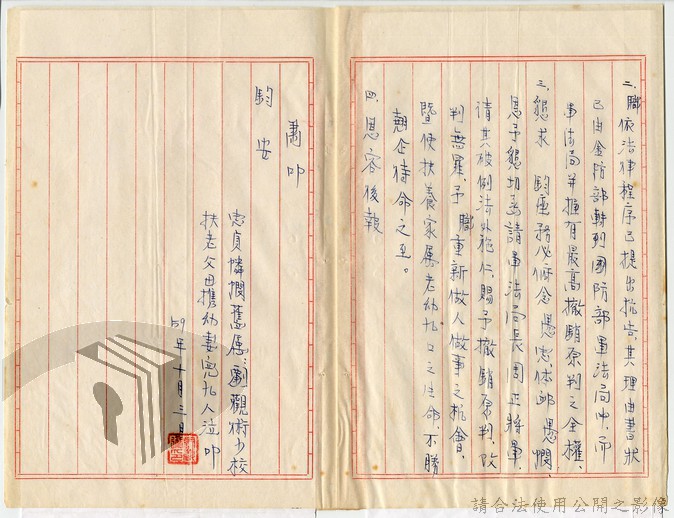 二、職依法律程序已提出抗告、其理由書狀
已由金防部轉到國防部軍法局中、而
軍法局并擁有最高撤銷原判之全權、
三、懇求 鈞座務必俯念愚忠、体邮愚憫、
惠予懇切函請軍法局長周正將軍、
請其破例法外施仁、賜予撤銷原判、改
判無罪、予職重新做人做事之机會、
暨使扶養家屬老幼九口之生命、不勝
翹企待命之至。
四、恩容後報
肅叩
鈞安
忠貞憐憫舊屬、劉觀術少校
扶老父母攜幼妻兒九人泣叩
59年十月三日
請合法使用公開之影像